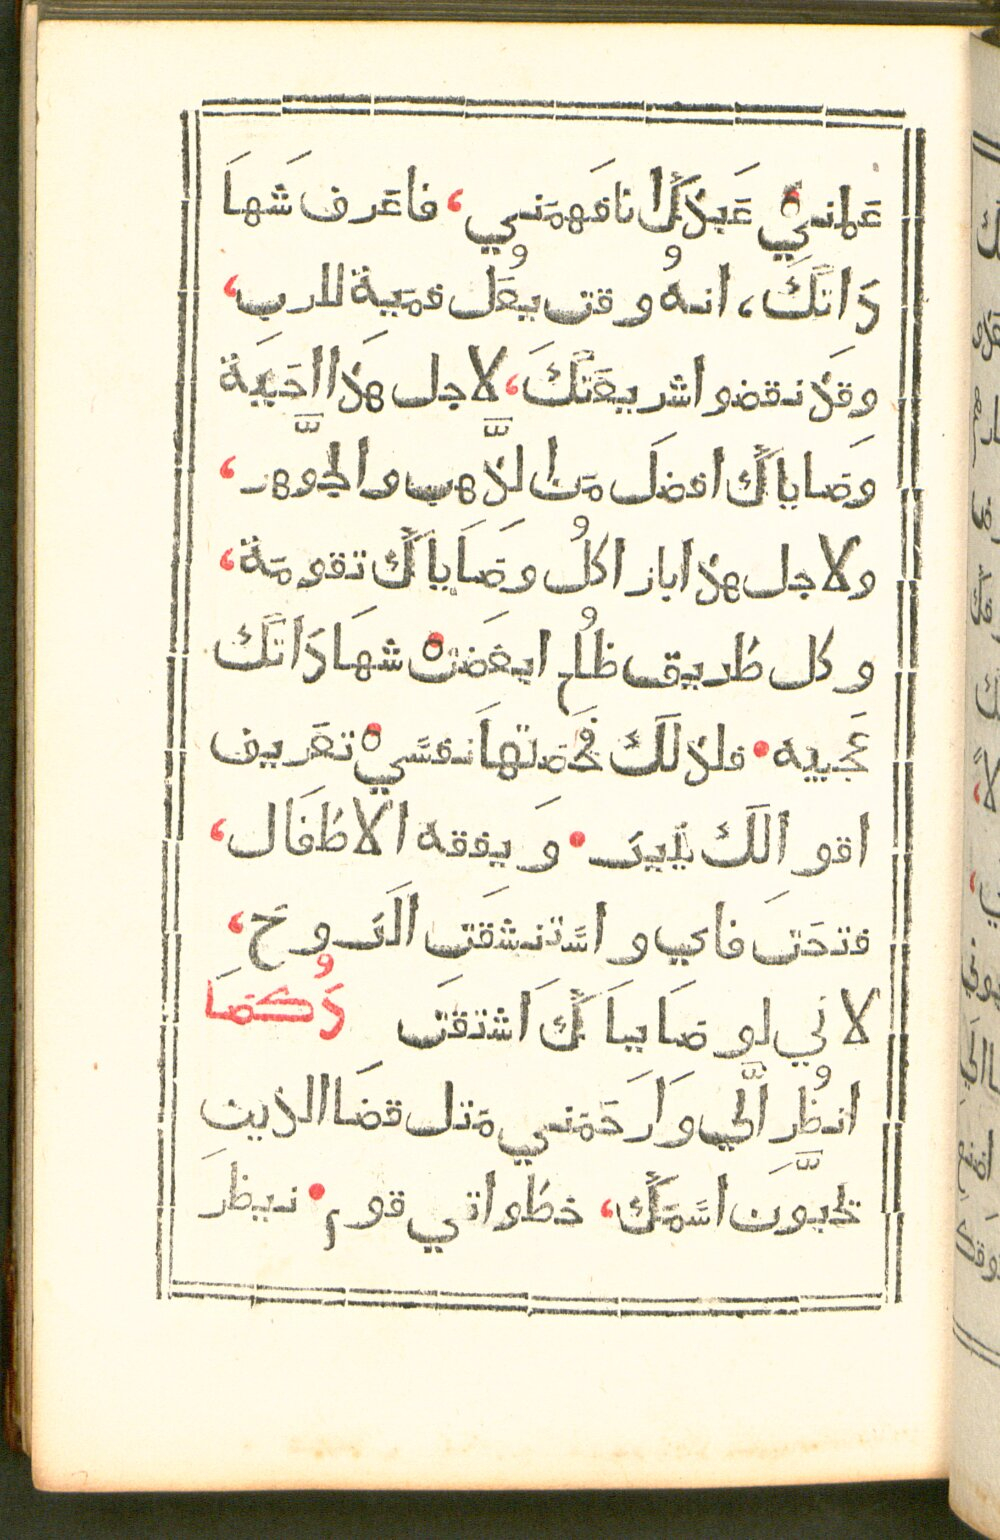 عَلمنيْ عَبدكَ انا فهمَني، فاعَرف شهاَ
دَاتكَ، انهُ وقت يعُل فمَية للرب،
وقَد نقضوا شريعَتكَ، لاجل هذَا احَبيَة
وصَاياكَ افضلَ مَن الذَّهب والجَّوهر،
ولاجل هذا بازا كلُ وصَاَياَكَ تقومَة،
وكل طريق ظلُم ابغضَتْ شهاَدَاتكَ
عَجيبه • فلذلَك فحَصَتهاَ نفسَيْ تعَريف
اقوالَك ينيرَ • وَيفقه الاطفَال،
فتحَتَ فاي واستَنشقتَ الرَوحَ،
لاني لوصَايباَكَ اَشتقتَ دُكصَاَ
انظُر الَّي وَارَحَمَني مَتل قضَا الذين
يحَّبوَن اسَمَكَ، خطوَاتي قوم • نيظرَ